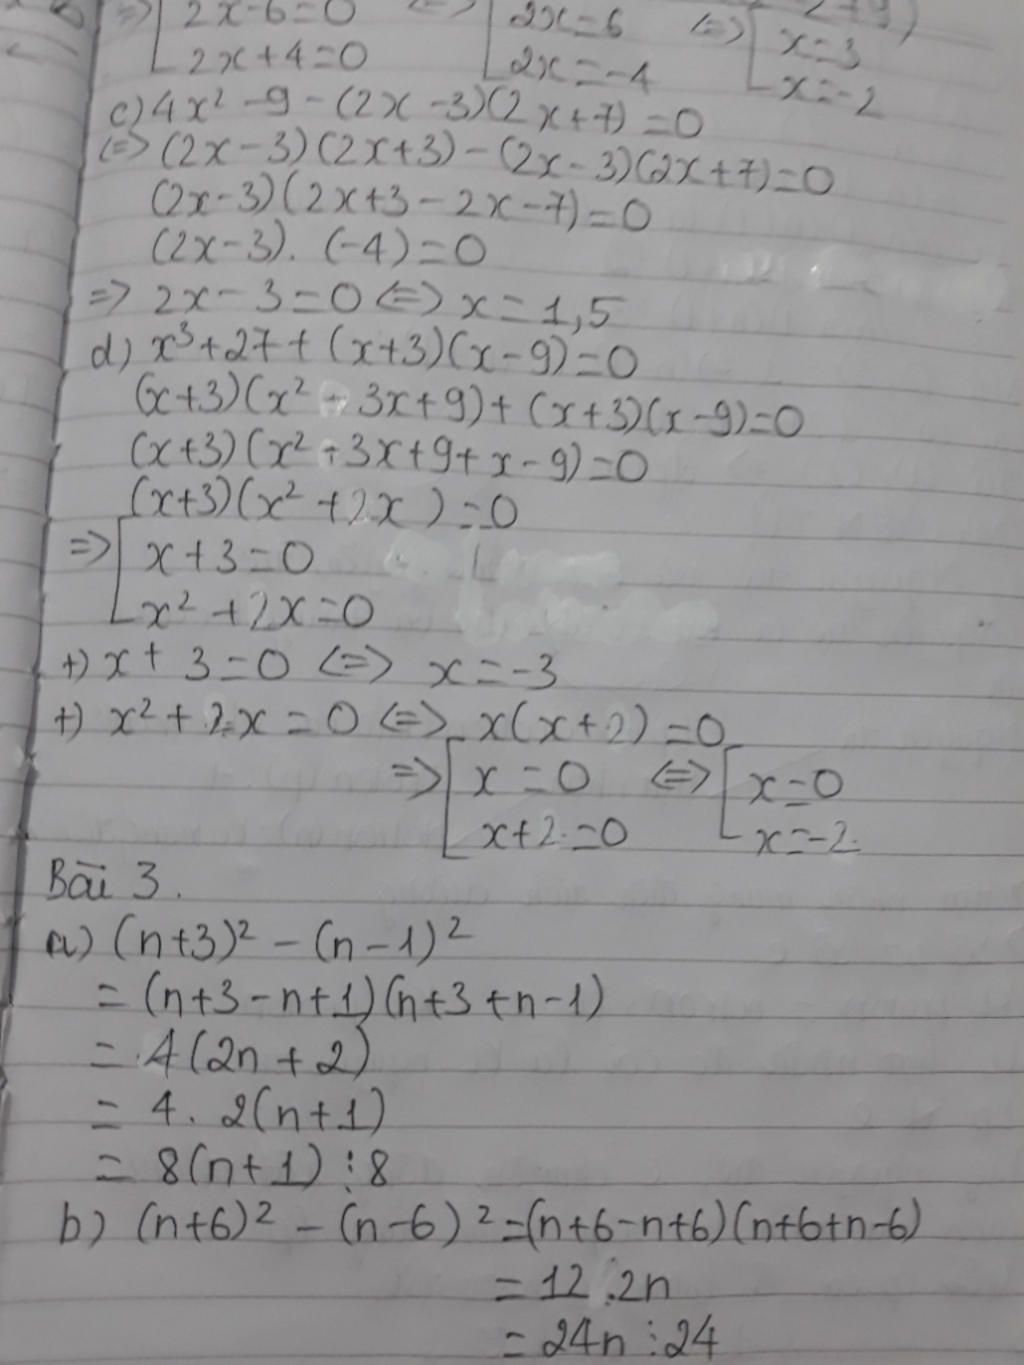 => [ 2x-6=0 <=> [ 2x=6 <=> [ x=3
2x+4=0 2x=-4 x=-2
c) 4x² -9 - (2x -3)(2x+7) =0
<=> (2x-3)(2x+3) - (2x-3)(2x+7)=0
(2x-3)(2x+3-2x-7)=0
(2x-3). (-4)=0
=> 2x-3=0 <=> x=1,5
d) x³+27+ (x+3)(x-9)=0
(x+3)(x² - 3x+9)+ (x+3)(x-9)=0
(x+3)(x² -3x+9+x-9)=0
(x+3)(x² +2x)=0
=> [ x+3=0
x² +2x=0
+) x+ 3=0 <=> x=-3
+) x²+2x=0 <=> x(x+2)=0
=> [ x=0 <=> [ x=0
x+2=0 x=-2.
Bài 3.
a) (n+3)² - (n-1)²
= (n+3-n+1)(n+3+n-1)
= 4(2n+2)
= 4. 2(n+1)
= 8(n+1) ⋮ 8
b) (n+6)² - (n-6)² =(n+6-n+6)(n+6+n-6)
= 12.2n
= 24n ⋮ 24